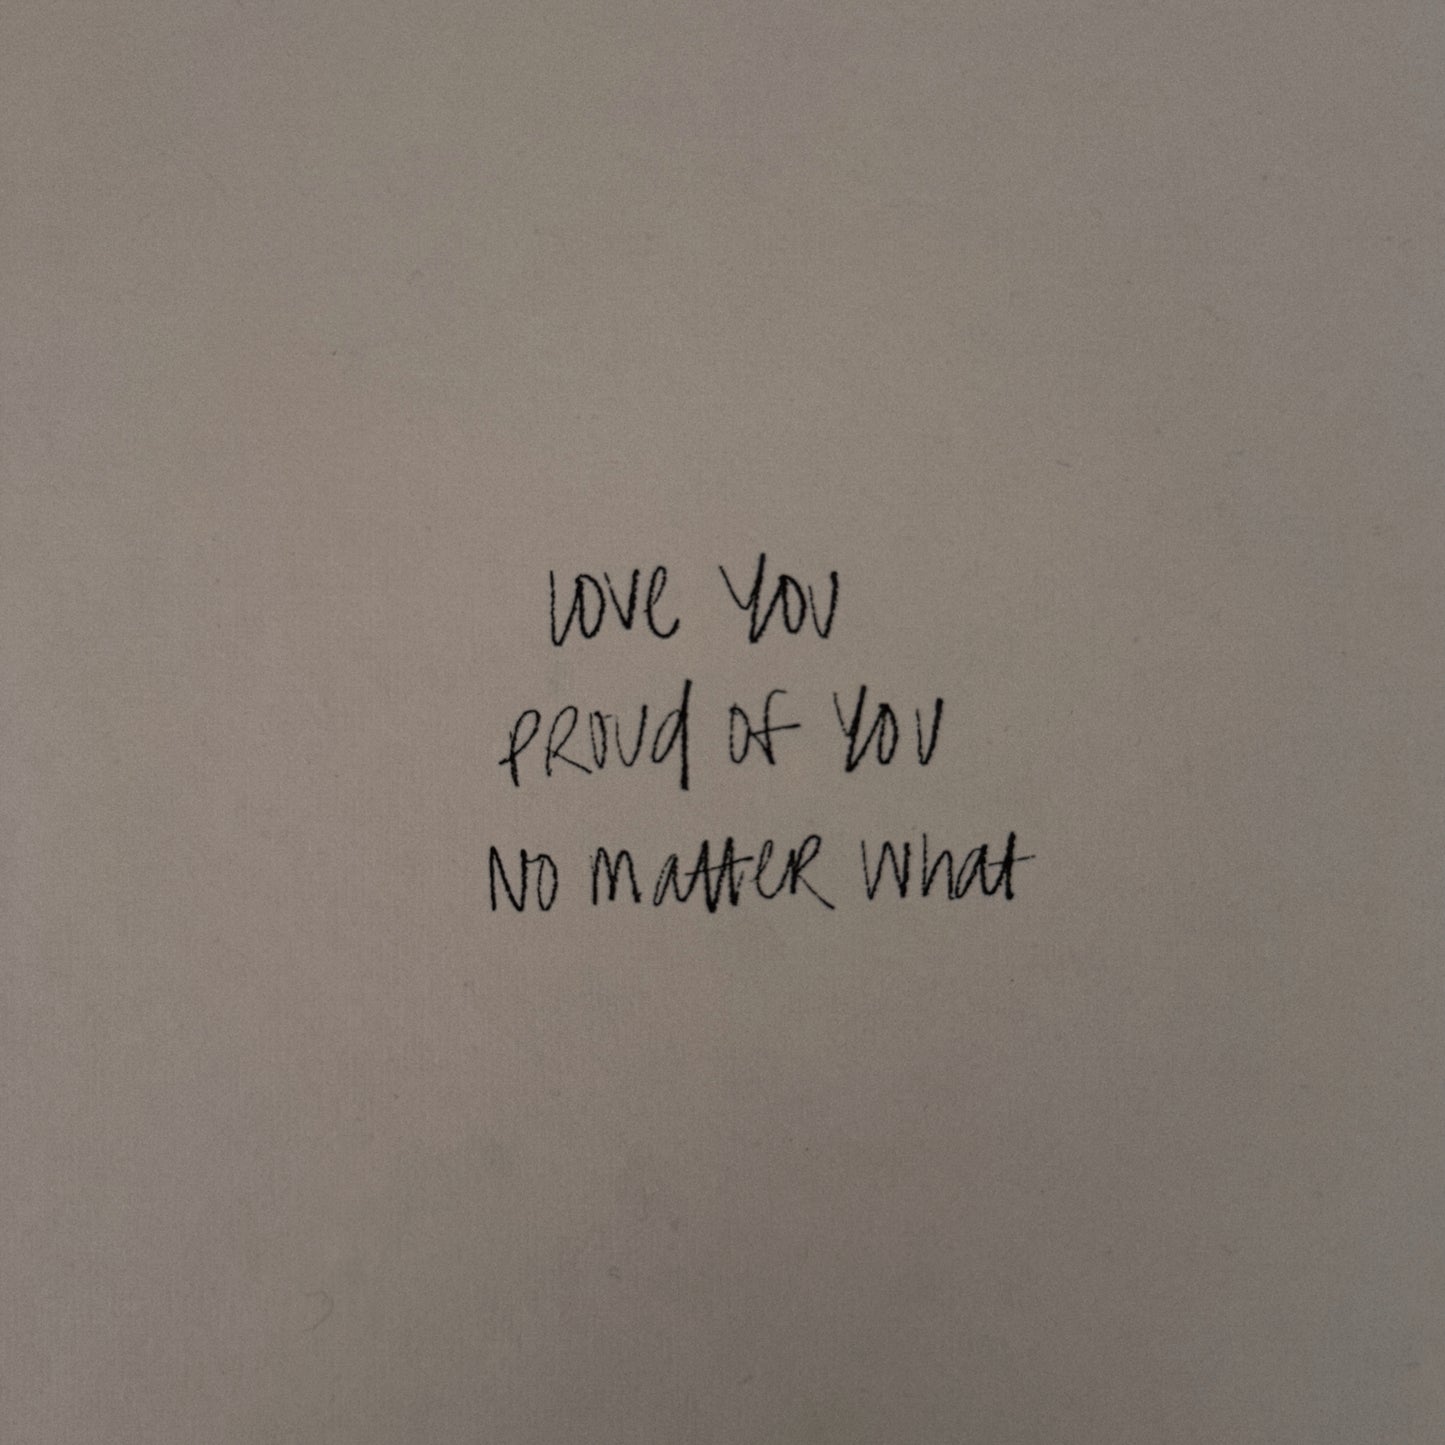 love you
PRoud of you
No matteR what